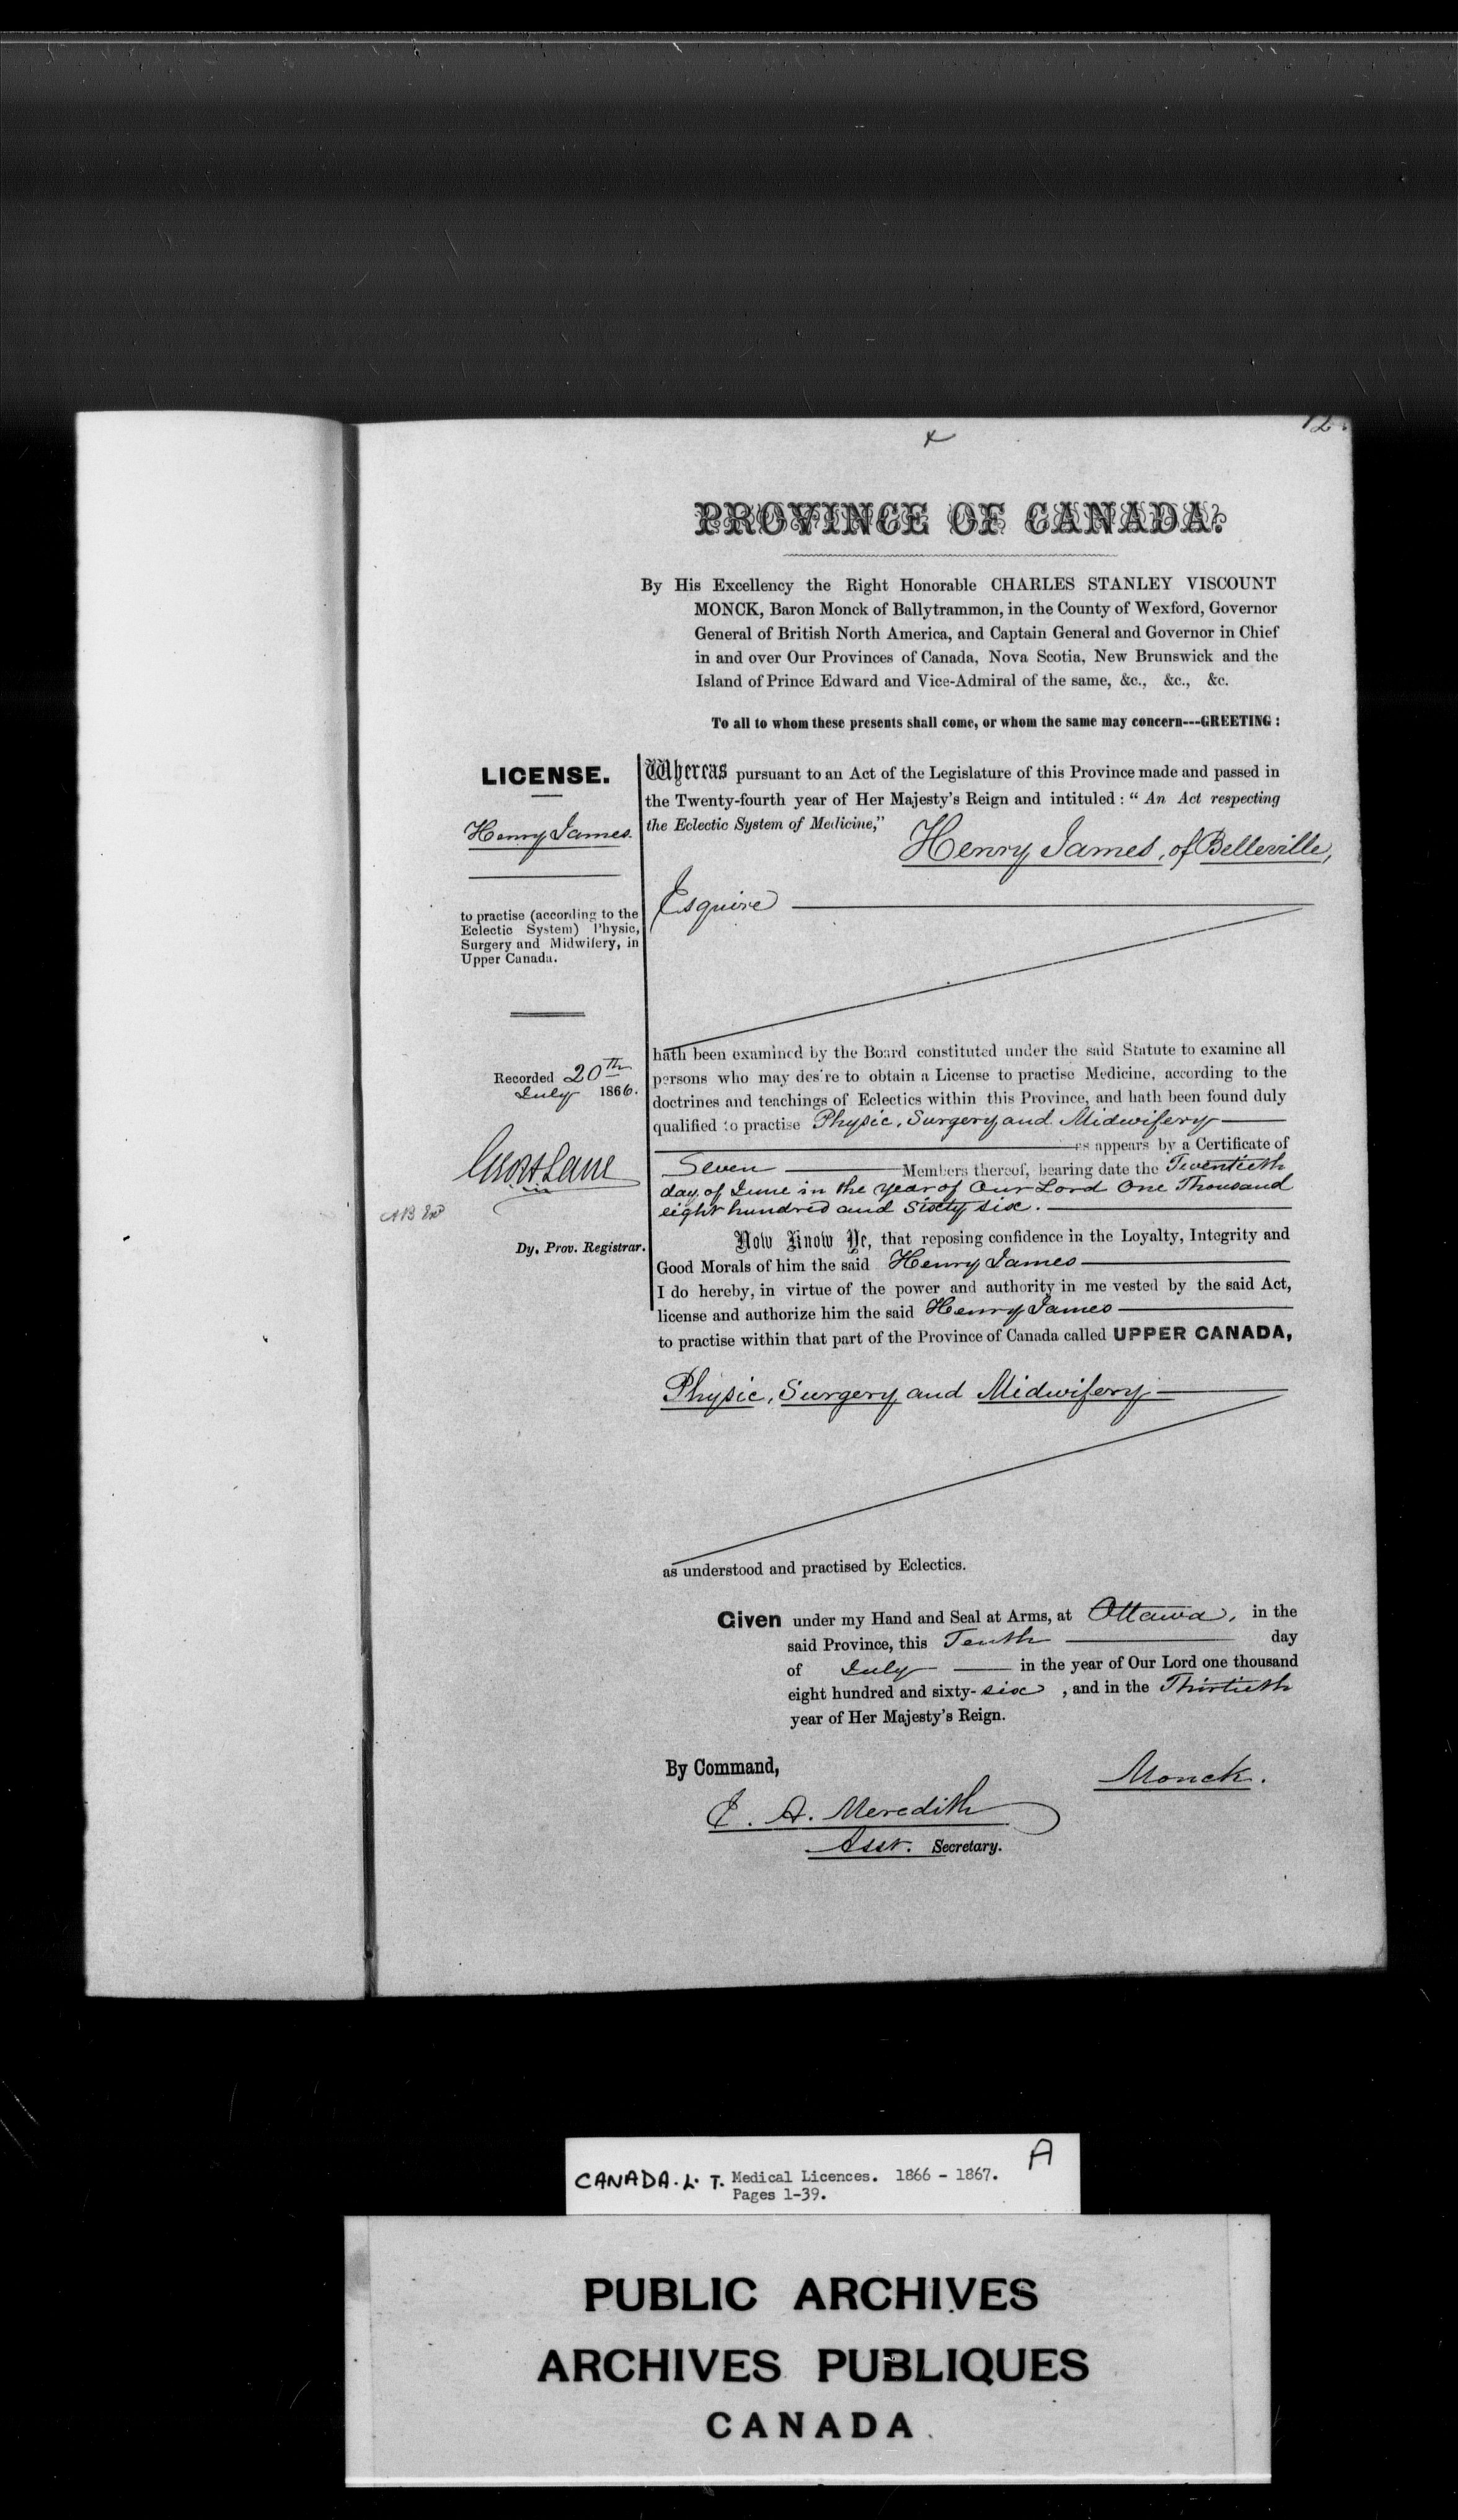 12.
PROVINCE OF CANADA.
By His Excellency the Right Honorable CHARLES STANLEY VISCOUNT
MONCK, Baron Monck of Ballytrammon, in the County of Wexford, Governor
General of British North America, and Captain General and Governor in Chief
in and over Our Provinces of Canada, Nova Scotia, New Brunswick and the
Island of Prince Edward and Vice-Admiral of the same, &c., &c., &c.
To all to whom these presents shall come, or whom the same may concern---GREETING:
LICENSE.
Henry James.
to practise (according to the
Eclectic System) Physic,
Surgery and Midwifery, in
Upper Canada.
Recorded 20th
July 1866.
Dy. Prov. Registrar.
Whereas pursuant to an Act of the Legislature of this Province made and passed in
the Twenty-fourth year of Her Majesty's Reign and intituled: "An Act respecting
the Eclectic System of Medicine,"
Henry James, of Belleville,
Esquire
hath been examined by the Board constituted under the said Statute to examine all
persons who may desire to obtain a License to practise Medicine, according to the
doctrines and teachings of Eclectics within this Province, and hath been found duly
qualified to practise Physic, Surgery and Midwifery
as appears by a Certificate of
Seven Members thereof, bearing date the Twentieth
day of June in the year of Our Lord One Thousand
eight hundred and Sixty six.
Now Know Ye, that reposing confidence in the Loyalty, Integrity and
Good Morals of him the said Henry James
I do hereby, in virtue of the power and authority in me vested by the said Act,
license and authorize him the said Henry James
to practise within that part of the Province of Canada called UPPER CANADA,
Physic, Surgery and Midwifery
as understood and practised by Eclectics.
Given under my Hand and Seal at Arms, at Ottawa, in the
said Province, this Tenth day
of July in the year of Our Lord one thousand
eight hundred and sixty-six, and in the Thirtieth
year of Her Majesty's Reign.
By Command,
Monck.
E. A. Meredith
Asst. Secretary.
CANADA. L. T. Medical Licences. 1866 - 1867.
Pages 1-39.
A
PUBLIC ARCHIVES
ARCHIVES PUBLIQUES
CANADA